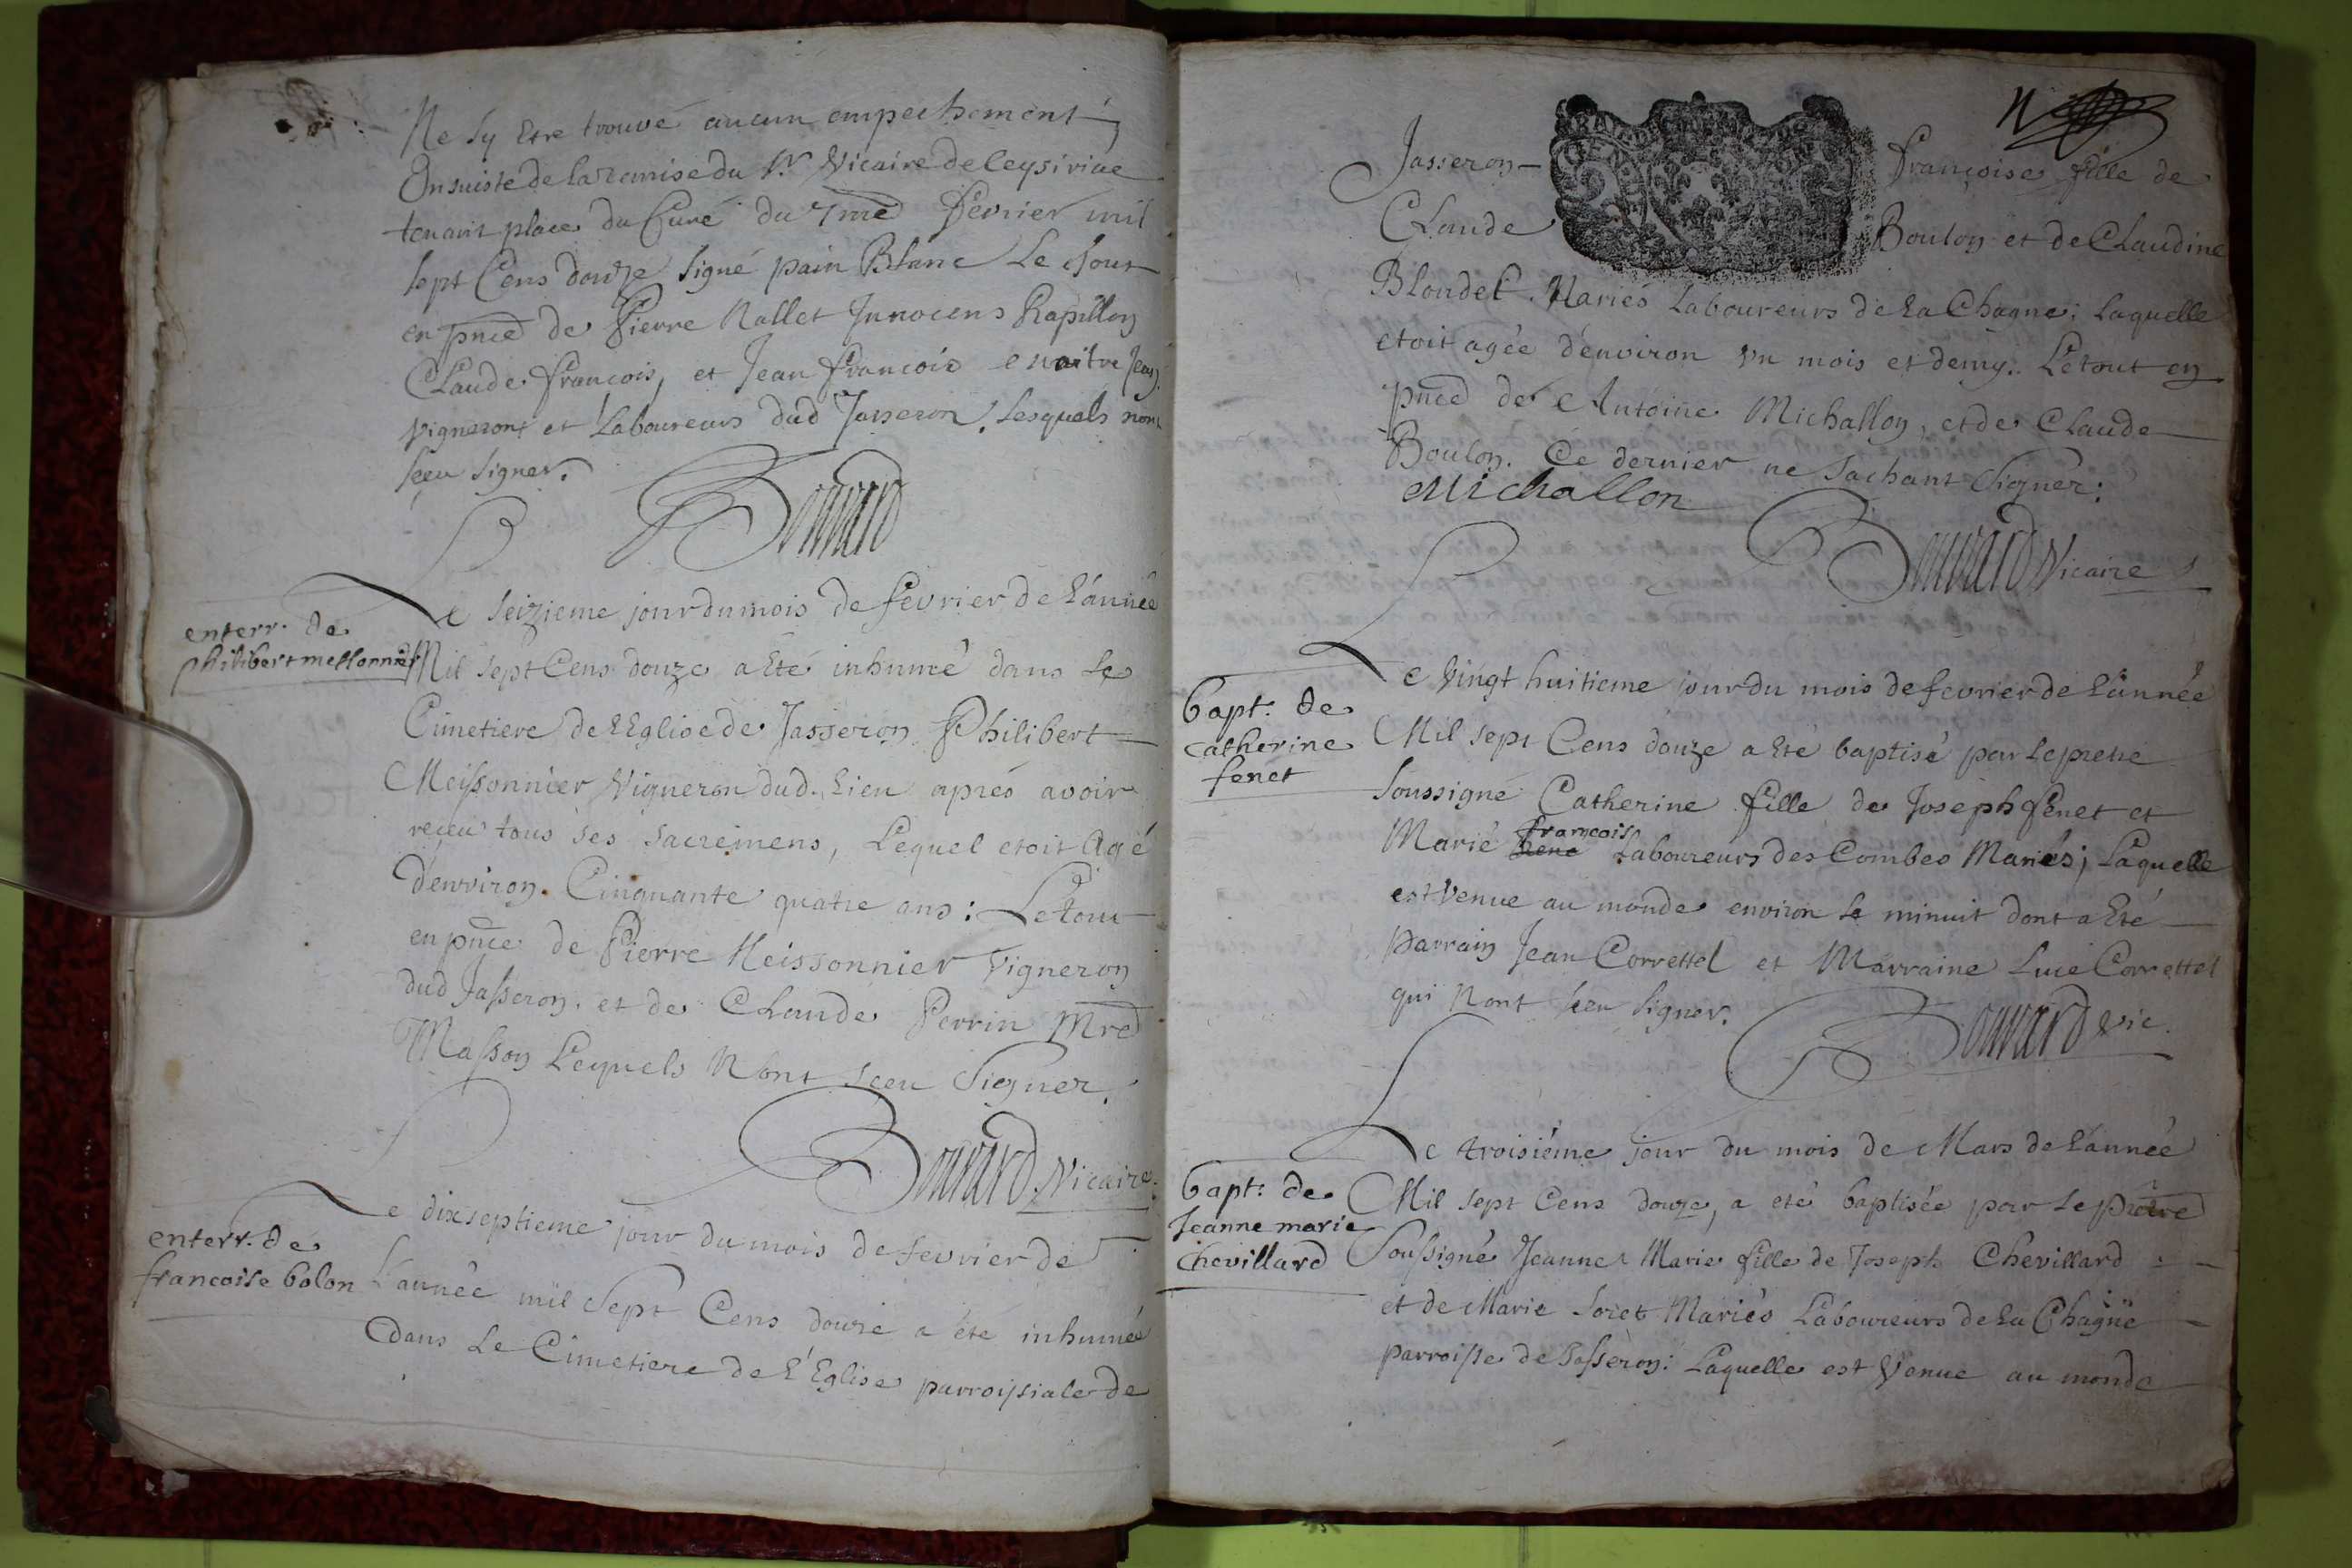 Ne sy Etre trouvé aucun empechement,
Ensuiste de la remise du Sr. Vicaire de Ceysiriae
tenant place du Curé du 7me fevrier mil
sept Cens douze signé pain Blanc Le tout
en pnce de Pierre Rallet Innocens Papillon
Claude francois, et Jean francois Jean
vignerons et Laboureurs dud Jasseron. Lesquels nont
sceu signer.
Bouvard
enterr. de
philibert messonnier
Le seizieme jour du mois de fevrier de L'année
Mil sept Cens douze a Eté inhumé dans Le
Cimetiere de L'Eglise de Jasseron Philibert
Meissonnier Vigneron dud. Lieu aprés avoir
reçeu tous ses sacremens, Lequel etoit Agé
D'environ. Cinquante quatre ans: Le tout
en pnce de Pierre Meissonnier Vigneron
dud Jasseron. et de Claude Perrin Mre
Masson Lequels Nont sceu Signer.
Bouvard Vicaire.
enterr. de
francoise bolon
Le dixseptieme jour du mois de fevrier de
L'année mil Sept Cens douze a été inhumée
dans Le Cimetiere de L'Eglise parroissiale de
Jasseron françoise fille de
Claude Boulon et de Claudine
Blondel Mariés Laboureurs de La Chagne: Laquelle
etoit agée d'environ Vn mois et demy. Le tout en
pnce de Antoine Michallon, et de Claude
Boulon. Ce dernier ne sachant Signer:
Michallon
Bouvard Vicaire
bapt. de
catherine
fenet
Le Vingt huitieme jour du mois de fevrier de L'année
Mil sept Cens douze a Eté baptisé par Le pretre
soussigné Catherine fille de Joseph fenet et
Marie francois Laboureurs des Combes Mariés; Laquelle
est Venue au monde environ Le minuit dont a Eté
parrain Jean Correttel et Marraine Luce Correttel
qui Nont sceu signer.
Bouvard vic.
bapt. de
Jeanne marie
chevillard
Le troisiéme jour du mois de Mars de L'année
Mil sept Cens douze, a eté baptisée par Le prêtre
Soussigné Jeanne Marie fille de Joseph Chevillard
et de Marie Soret Mariés Laboureurs de La Chagne
parroisse de Jasseron: Laquelle est Venue au monde